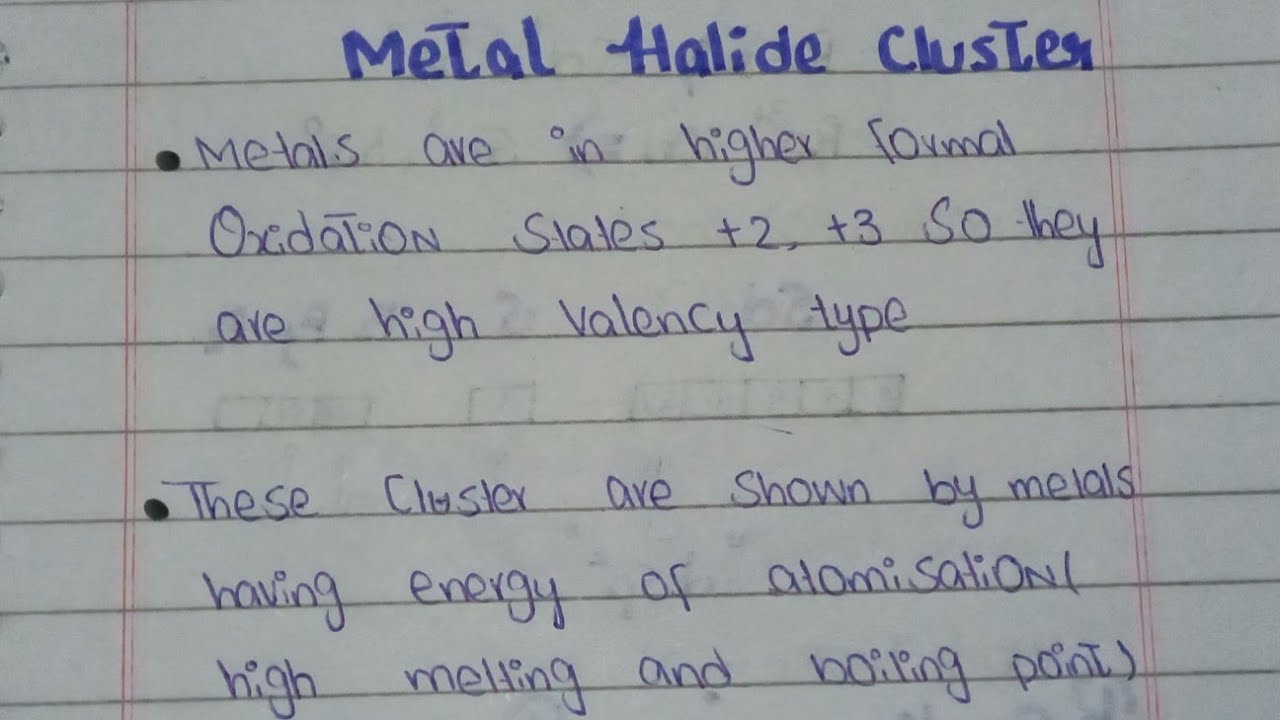 Metal Halide Cluster
• Metals are in higher formal
Oxidation States +2, +3 So they
are high valency type
• These Cluster are shown by metals
having energy of atomisation(
high melting and boiling point)